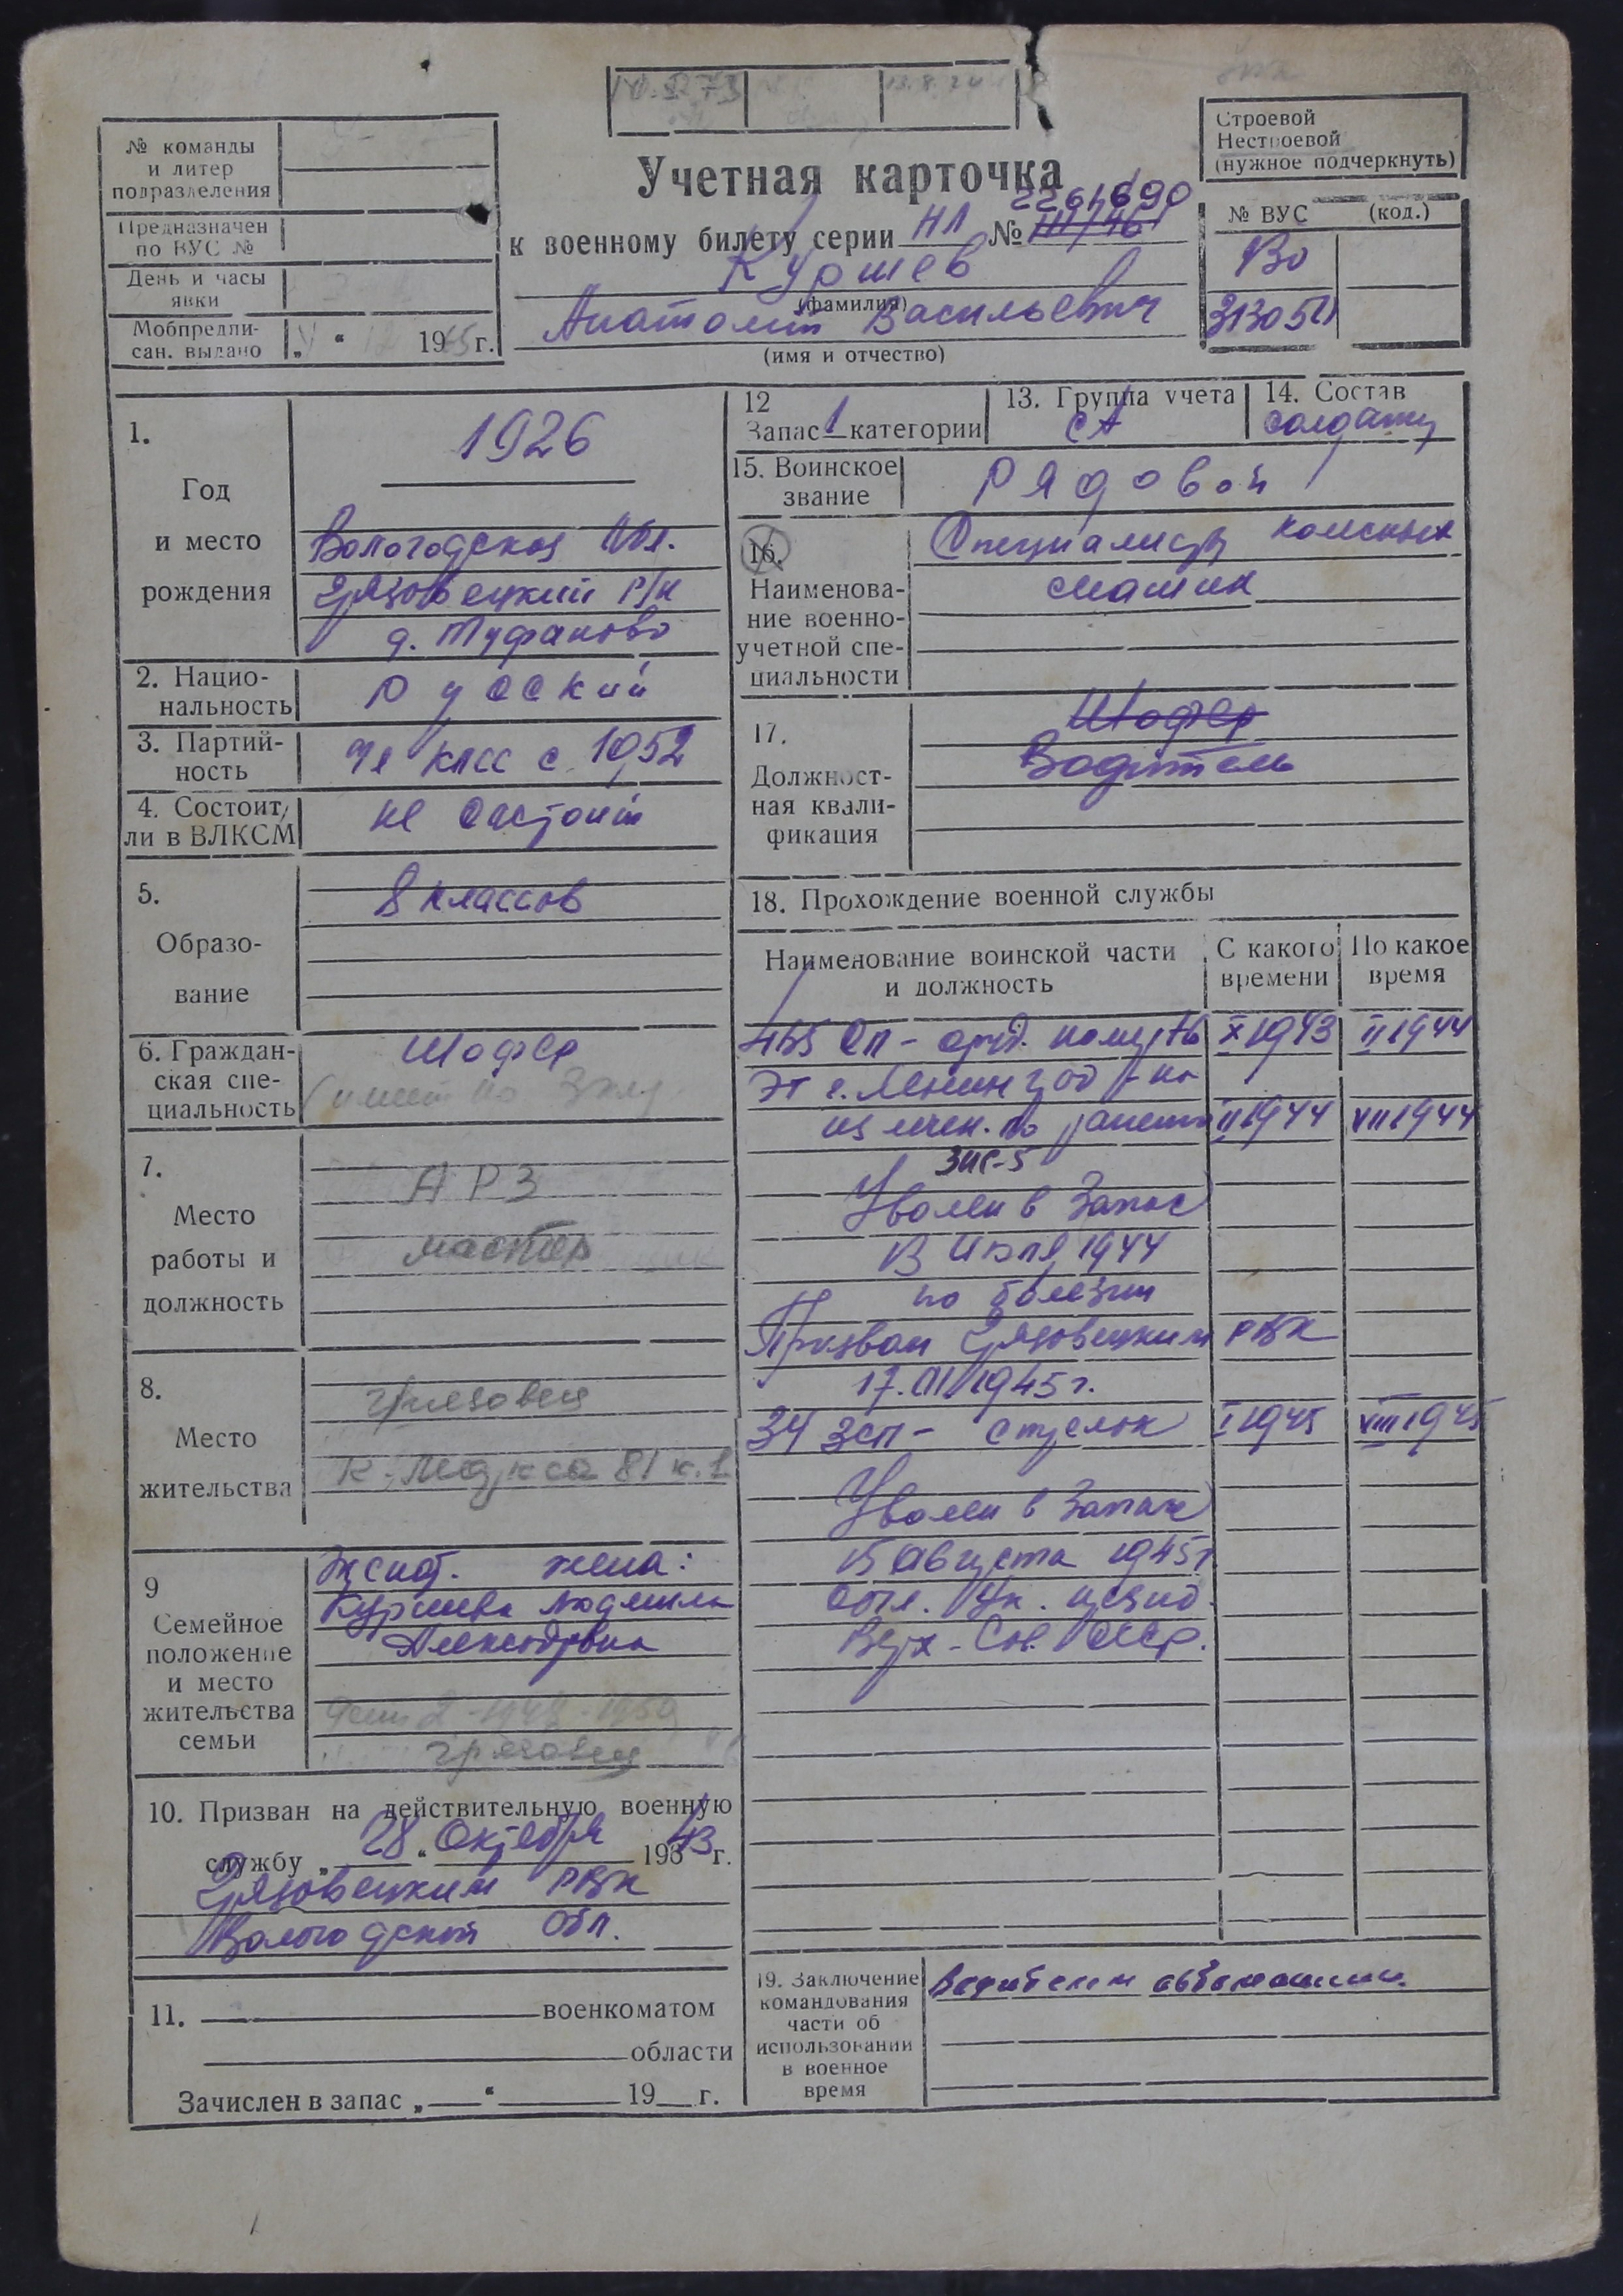 Строевой
Нестроевой
(нужное подчеркнуть)
№ команды
и литер
подразделения
Предназначен
по ВУС №
День и часы
явки
Мобпредпи-
сан. выдано „ “ 1965 г.
Учетная карточка
2264690
к военному билету серии НЛ №
Куршев
(фамилия)
Анатолий Васильевич
(имя и отчество)
№ ВУС (код.)
1.
Год
и место
рождения
1926
Вологодская обл.
Грязовецкий р/н
д. Туфаново
2. Нацио-
нальность
русский
3. Партий-
ность
чл КПСС с 1952
4. Состоит
ли в ВЛКСМ
не состоит
5.
Образо-
вание
8 классов
6. Граждан-
ская спе-
циальность
Шофер
7.
Место
работы и
должность
АРЗ
мастер
8.
Место
жительства
Грязовец
К. Маркса 81 к. 1
9
Семейное
положение
и место
жительства
семьи
Женат. жена:
Куршева Людмила
Александровна
Грязовец
10. Призван на действительную военную
службу „28“ Октября 1943 г.
Грязовецким РВК
Вологодской обл.
11. военкоматом
области
Зачислен в запас „ “ 19 г.
12
Запас 1 категории
13. Группа учета
СА
14. Состав
солдаты
15. Воинское
звание
рядовой
16.
Наименова-
ние военно-
учетной спе-
циальности
Специалисты колесных
машин
17.
Должност-
ная квали-
фикация
Шофер
Водитель
18. Прохождение военной службы
Наименование воинской части
и должность
С какого
времени
По какое
время
X 1943 II 1944
ЭГ г. Ленинград - на
II 1944 VII 1944
ЗИС-5
Уволен в запас
В июле 1944
по болезни
Призван Грязовецким РВК
1945 г.
34 зсп - стрелок I 1945 VIII 1945
Уволен в запас
15 августа 1945 г
Верх. Сов. СССР.
19. Заключение
командования
части об
использовании
в военное
время
Водителем автомашины.